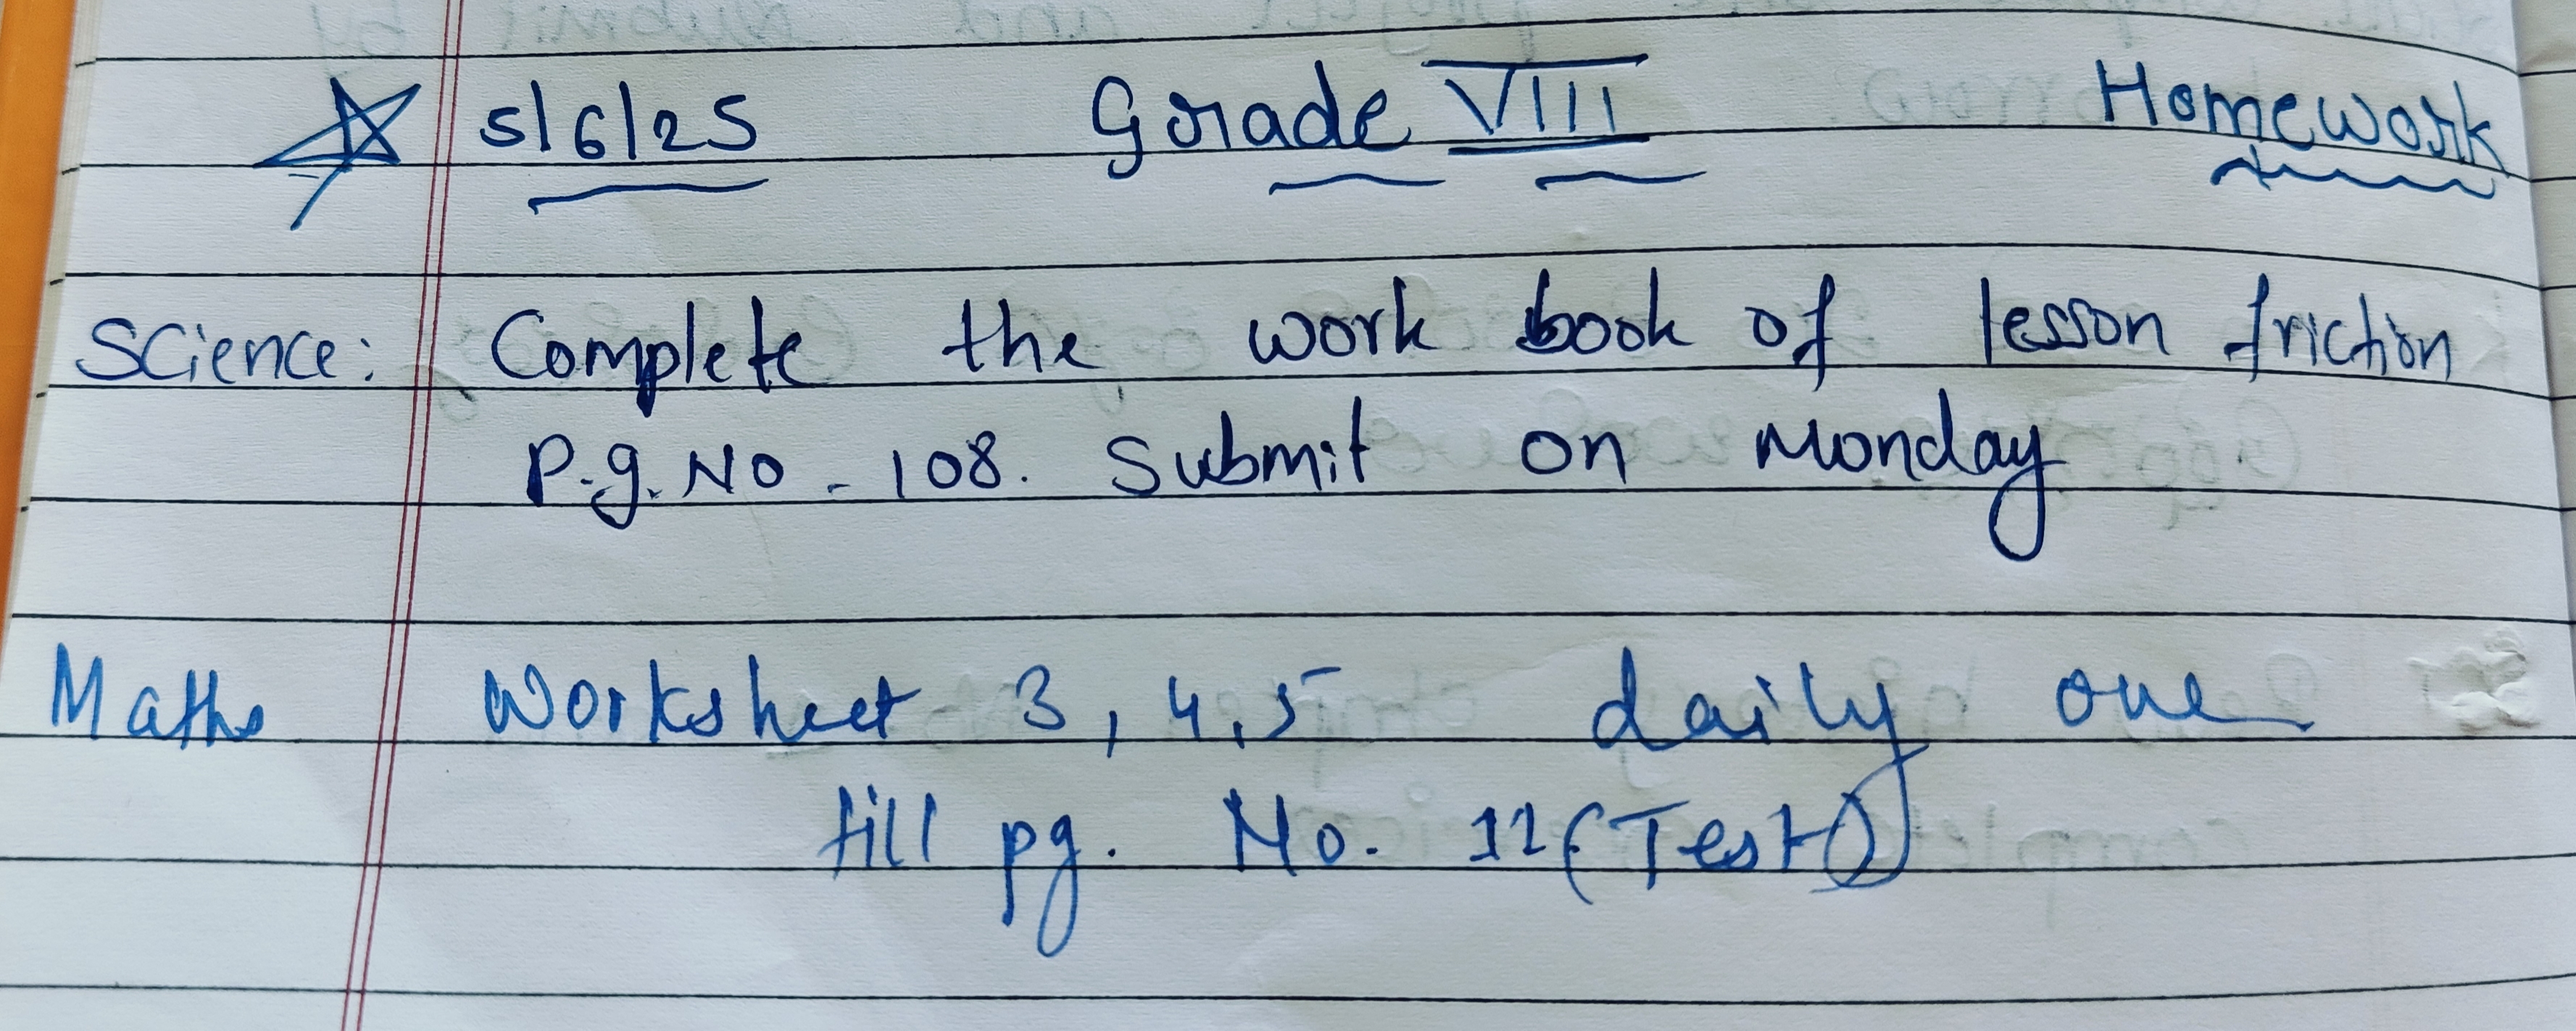 5/6/25 Grade VIII Homework
Science: Complete the work book of lesson friction
P.g. No - 108. Submit on Monday
Maths Worksheet 3, 4, 5 daily one
till pg. No. 11 (Test)